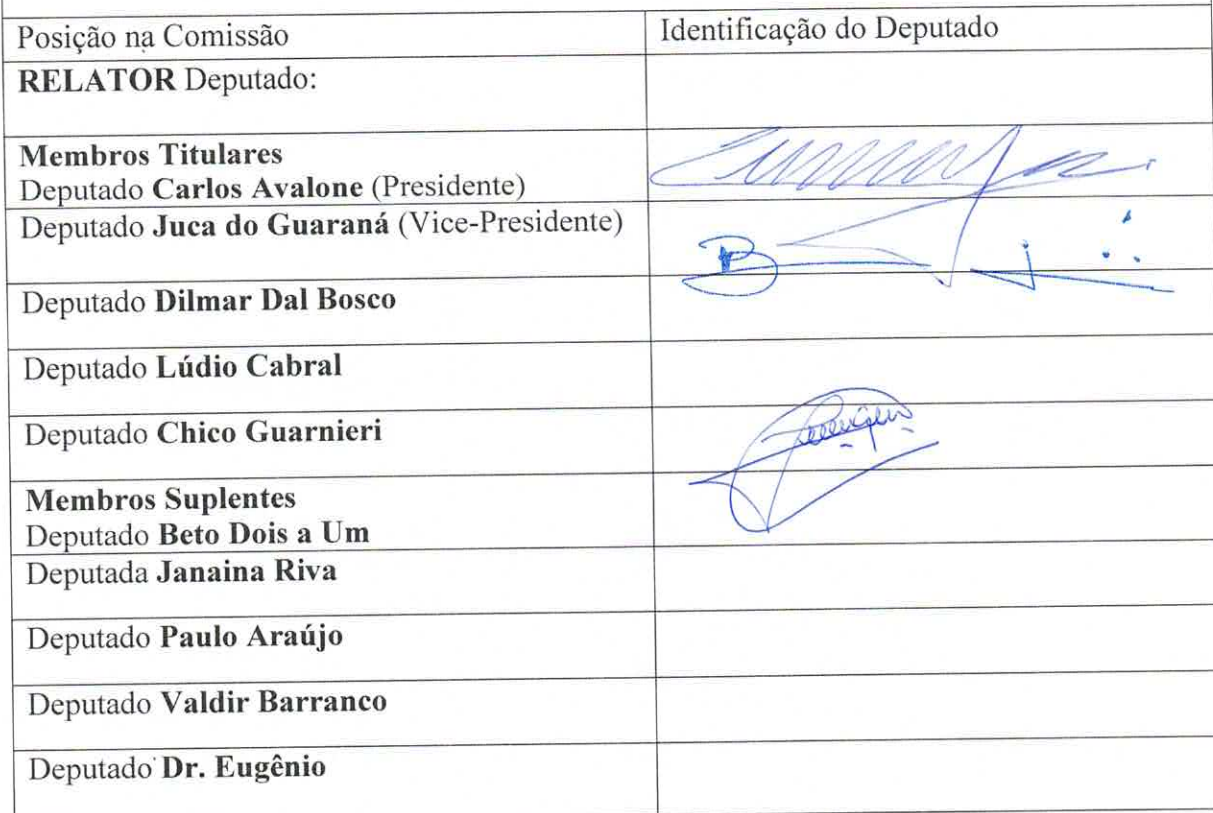 Posição na Comissão
Identificação do Deputado
RELATOR Deputado:
Membros Titulares
Deputado Carlos Avalone (Presidente)
Deputado Juca do Guaraná (Vice-Presidente)
Deputado Dilmar Dal Bosco
Deputado Lúdio Cabral
Deputado Chico Guarnieri
Membros Suplentes
Deputado Beto Dois a Um
Deputada Janaina Riva
Deputado Paulo Araújo
Deputado Valdir Barranco
Deputado Dr. Eugênio